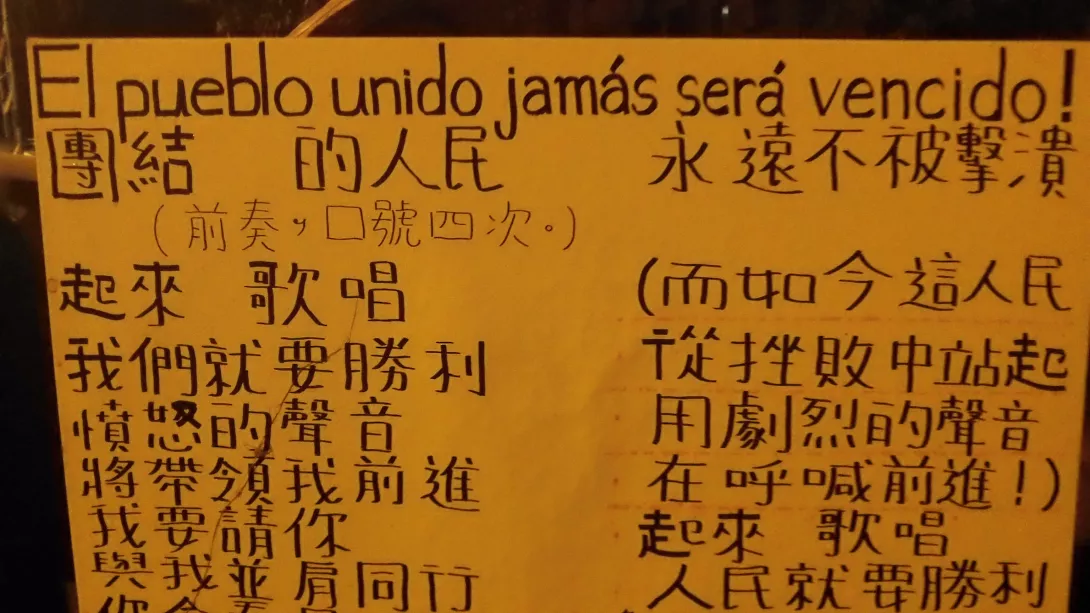 El pueblo unido jamás será vencido!
團結 的人民 永遠不被擊潰
(前奏,口號四次。)
起來 歌唱
我們就要勝利
憤怒的聲音
將帶領我前進
我要請你
與我並肩同行
(而如今這人民
從挫敗中站起
用劇烈的聲音
在呼喊前進!)
起來 歌唱
人民就要勝利